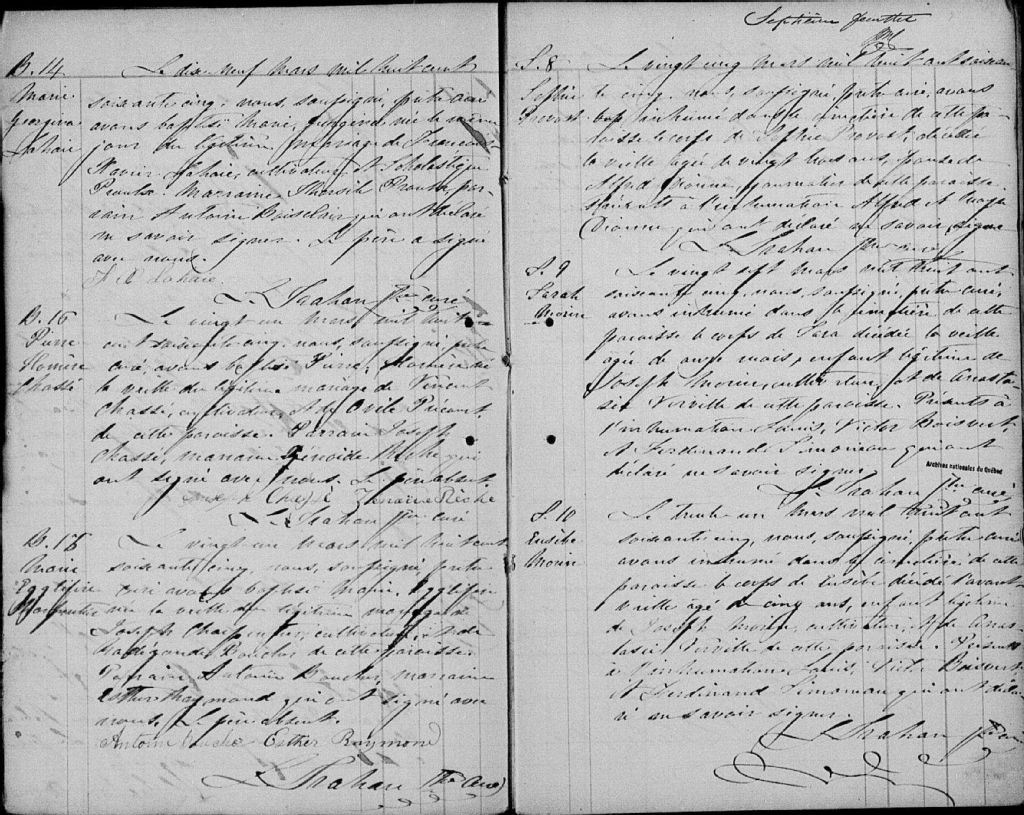 B. 14
Marie
Georgina
Lahaie
Le dix neuf mars mil huit cent
soixante cinq, nous, soussigné, prêtre curé
avons baptisé Marie, Georgina née le même
jour du légitime mariage de François
Xavier Lahaie, cultivateur, et Scholastique
Proulx. Marraine Proulx, par
rain Antoine Boisclair qui ont déclaré
ne savoir signer. Le père a signé
avec nous.
F X Lahaie
L. Trahan Ptre curé
Pierre
Homère
Chassé
Le vingt un mars mil huit
cent soixante cinq, nous, soussigné, prêtre
curé, avons baptisé Pierre, Homère né
la veille du légitime mariage de Vincent
Chassé, cultivateur et de Odile Picard
de cette paroisse. Parrain Joseph
Chassé, marraine Zénaïde Riché qui
ont signé avec nous. Le père absent
Joseph Chassé Zénaïde Riché
L. Trahan Ptre curé
Marie
Charpentier
Le vingt un mars mil huit cent
soixante cinq, nous, soussigné, prêtre
curé avons baptisé Marie,
née la veille du légitime mariage de
Joseph Charpentier, cultivateur, et de
Radegonde Boucher de cette paroisse.
Parrain Antoine Boucher, marraine
Esther Raymond qui ont signé avec
nous. Le père absent.
Antoine Bouché Esther Raymond
L. Trahan Ptre curé
Septième feuillet
S. 8
Sophie
Provost
Le vingt cinq mars mil huit cent soixan
te cinq, nous, soussigné, prêtre curé, avons
inhumé dans le cimetière de cette pa
roisse le corps de Sophie Provost, décédée
la veille agée de vingt trois ans, épouse de
Alfred Dionne, journalier de cette paroisse.
Présents à l'inhumation Alfred et
Dionne qui ont déclaré ne savoir signer
L. Trahan Ptre curé
S. 9
Sarah
Morin
Le vingt sept mars mil huit cent
soixante cinq, nous, soussigné, prêtre curé,
avons inhumé dans le cimetière de cette
paroisse le corps de Sara décédée la veille
agée de onze mois, enfant légitime de
Joseph Morin, cultivateur, et de Anasta
sie Verville de cette paroisse. Présents à
l'inhumation Louis, Victor Boisvert
et Ferdinand Simoneau qui ont
déclaré ne savoir signer
Archives nationales du Québec
L. Trahan Ptre curé
S. 10
Eusèbe
Morin
Le trente un mars mil huit cent
soixante cinq, nous, soussigné, prêtre curé
avons inhumé dans le cimetière de cette
paroisse le corps de Eusèbe décédé l'avant
veille agé de cinq ans, enfant légitime
de Joseph Morin, cultivateur, et de Anas
tasie Verville de cette paroisse. Présents
à l'inhumation Louis, Vict. Boisvert
et Ferdinand Simoneau qui ont décla
ré ne savoir signer.
L. Trahan Ptre curé